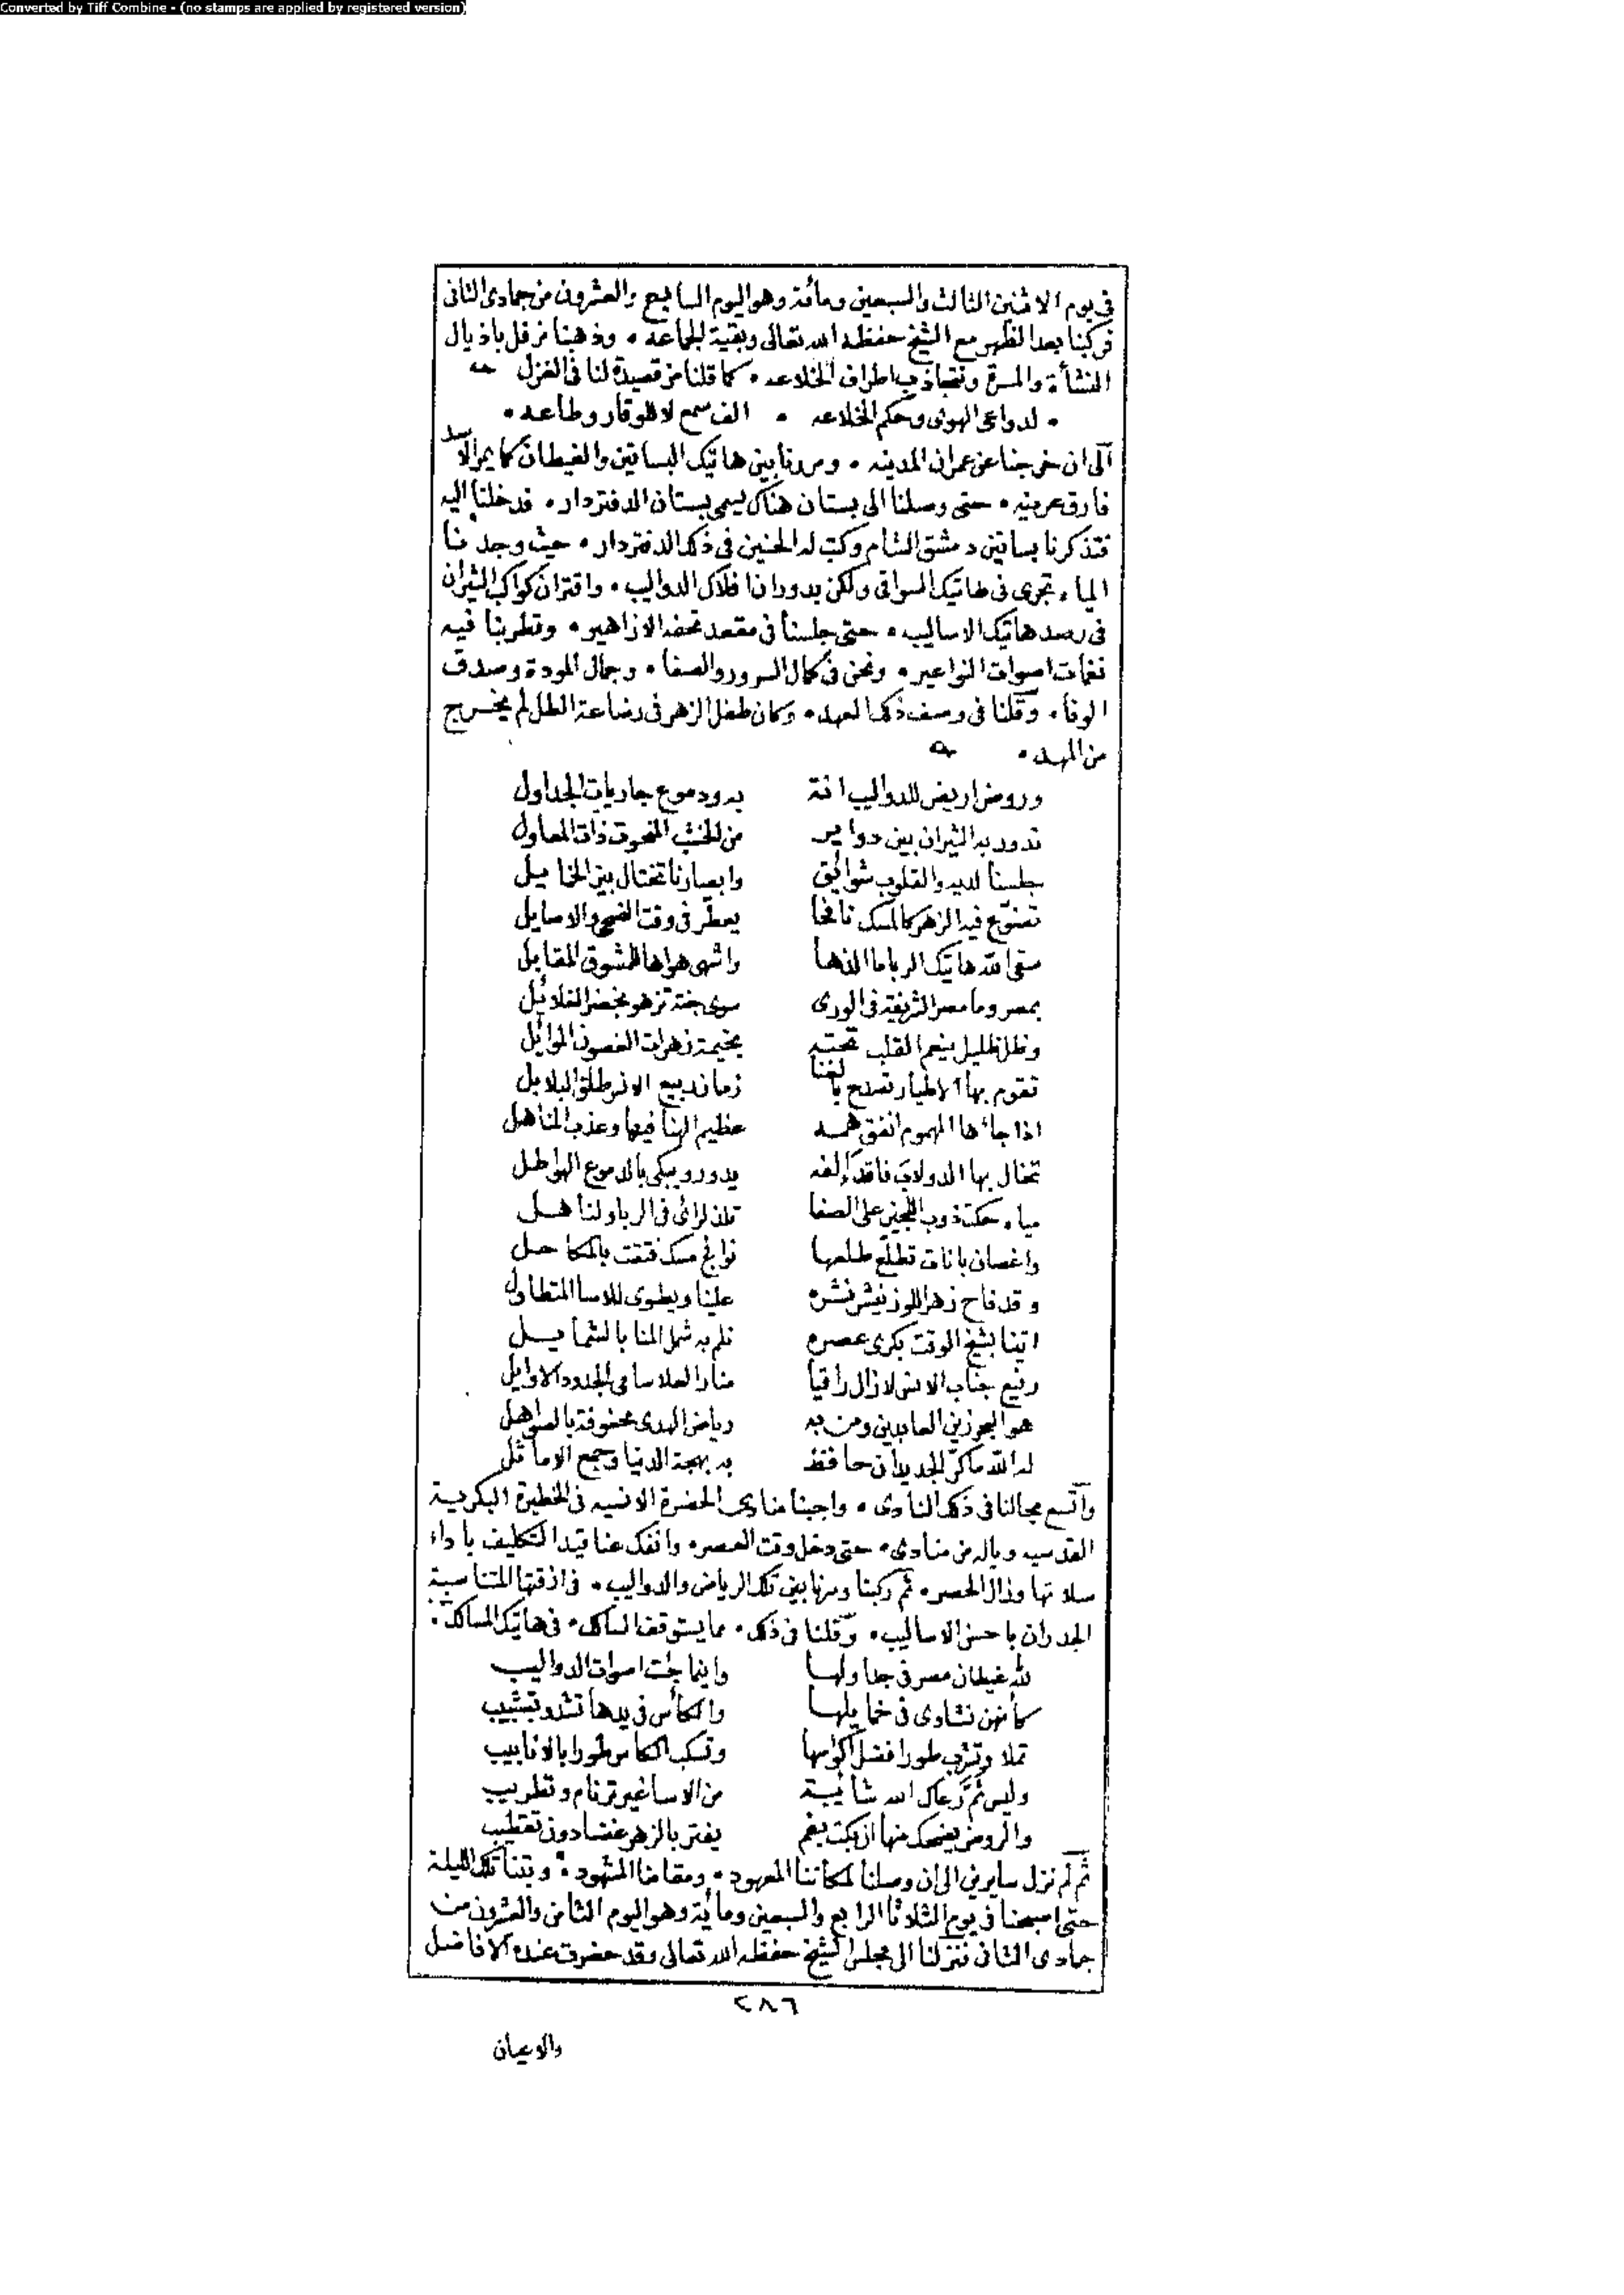 Converted by Tiff Combine - (no stamps are applied by registered version)
في يوم الاثنين الثالث والسبعين ومائة وهو اليوم السابع والعشرون من جمادى الثانى
فركبنا بعد الظهر مع الشيخ حفظه الله تعالى وبقية الجماعه • وذهبنا نرفل باذيال
النشأة والمسرة ونتجاذب اطراف الخلاعه • كما قلنا من قصيدة لنا فى الغزل
• لدواعى الهوى وحكم الخلاعه • الف سمع لا للوقار وطاعه •
الى ان خرجنا عن عمران المدينه • ومررنا بين هاتيك البساتين والغيطان كما يمر الاسد
فارق عرينه • حتى وصلنا الى بستان هناك يسمى بستان الدفتردار • فدخلنا اليه
فتذكرنا بساتين دمشق الشام وكتب له الحنين فى ذلك الدفتردار • حيث وجدنا
المياء تجرى فى هاتيك السواقى ولكن بدوران افلاك الدواليب • واقتران كواكب الثيران
فى رصد هاتيك الاساليب • حتى جلسنا فى مقعد تحفه الازاهير • وتطربنا فيه
نغمات اصوات النواعير • ونحن فى كمال السرور والصفا • وجمال المودة وصدق
الوفاء وقلنا فى وصف ذلك العهد • وكان طفل الزهر فى رضاعة الطل لم يخرج
من المهد •
وروض اريض للدواليب انة به ودموع جاريات الجداول
تدور به الثيران بين دواير من الخشب المنحوت ذات المعاول
جلسنا لديه والقلوب شوائق وابصارنا تختال بين الخمايل
تضوع فيه الزهر كالمسك نافحا يعطر فى وقت الضحى والاصايل
سقى الله هاتيك الربا ما الذها واشهى هواها للمشوق المقابل
بمصر وما مصر الشريفة فى الورى سوى جنة تزهو بخضر الغلائل
وظل ظليل ينعم القلب تحته بخيمة زهرات الغصون الموائل
تقوم بها الاطيار تصدح بالغنا زمان ربيع الانس طلق البلابل
اذا جاءها المهموم انفق همه عظيم الهنا فيها وعذب المناهل
تخال بها الدولاب فاقد إلفه يدور ويبكى بالدموع الهواطل
مياء حكت ذوب اللجين على الصفا تلذ لرائ فى الربا ولناهل
واغصان بانات تطلع طلعها نوافح مسك فتقت بالمكاحل
وقد فاح زهر اللوز ينشر نشره علينا ويطوى للاسا المتطاول
اتينا بشيخ الوقت بكرى عصره نلم به شمل المنا بالشمايل
رفيع جناب الانس لازال راقيا منار العلا سامى الجدود الاوايل
هو البحر زين العابدين ومن به رياض الهدى محفوفة بالصواهل
له الله ماكر الجديدان حافظ به بهجة الدنيا وجمع الاماثل
واتسع مجالنا فى ذلك النادى • واجبنا منادى الحضرة الانسيه فى الحظيرة البكرية
القدسيه وياله من منادى • حتى دخل وقت العصر • وانفك عنا قيد التكليف باداء
صلاتها وزال الحصر • ثم ركبنا ومرنا بين تلك الرياض والدواليب • فى ازقتها المتناسبة
الجدران باحسن الاساليب • وقلنا فى ذلك • مما يستوقف السالك • فى هاتيك المسالك •
لله غيطان مصر فى جداولها واينما جلت اصوات الدواليب
كأنهن نشاوى فى خمايلها والكأس فى يدها تشدو بتشبيب
تملا وتشرب طورا فضل اكؤسها وتسكب الكاس طورا بالانابيب
وليس ثم رعاك الله شائبة من الاسا غير ترنام وتطريب
والروض يضحك منها ان بكت بفم يفتر بالزهر غضا دون تقطيب
ثم لم نزل سايرين الى ان وصلنا لمكاننا المعهود • ومقامنا المشهود • وبتنا تلك الليلة
حتى اصبحنا فى يوم الثلاثا الرابع والسبعين ومائة وهو اليوم الثامن والعشرون من
جمادى الثانى فنزلنا الى مجلس الشيخ حفظه الله تعالى وقد حضرت عنده الافاضل
٢٨٦
والاعيان